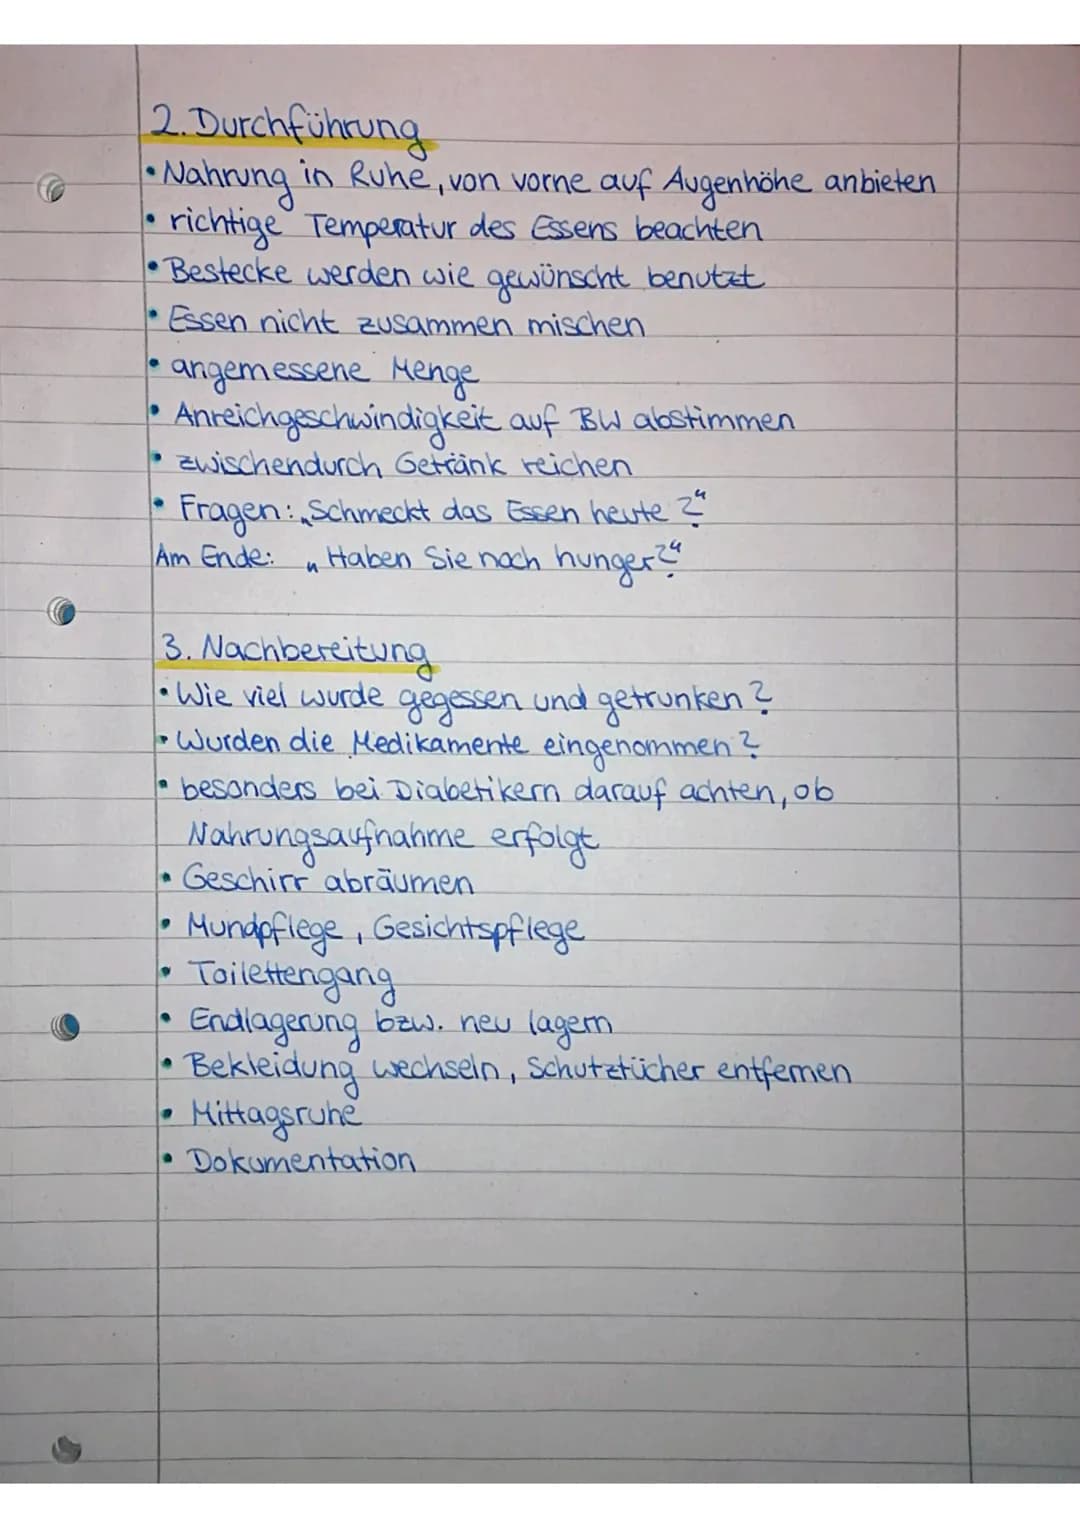 2. Durchführung
• Nahrung in Ruhe, von vorne auf Augenhöhe anbieten
• richtige Temperatur des Essens beachten
• Bestecke werden wie gewünscht benutzt
• Essen nicht zusammen mischen
• angemessene Menge
• Anreichgeschwindigkeit auf BW abstimmen
• zwischendurch Getränk reichen
• Fragen: „Schmeckt das Essen heute?“
Am Ende: „Haben Sie noch hunger?“
3. Nachbereitung
• Wie viel wurde gegessen und getrunken?
• Wurden die Medikamente eingenommen?
• besonders bei Diabetikern darauf achten, ob
Nahrungsaufnahme erfolgt
• Geschirr abräumen
• Mundpflege, Gesichtspflege
• Toilettengang
• Endlagerung bzw. neu lagern
• Bekleidung wechseln, Schutztücher entfernen
• Mittagsruhe
• Dokumentation